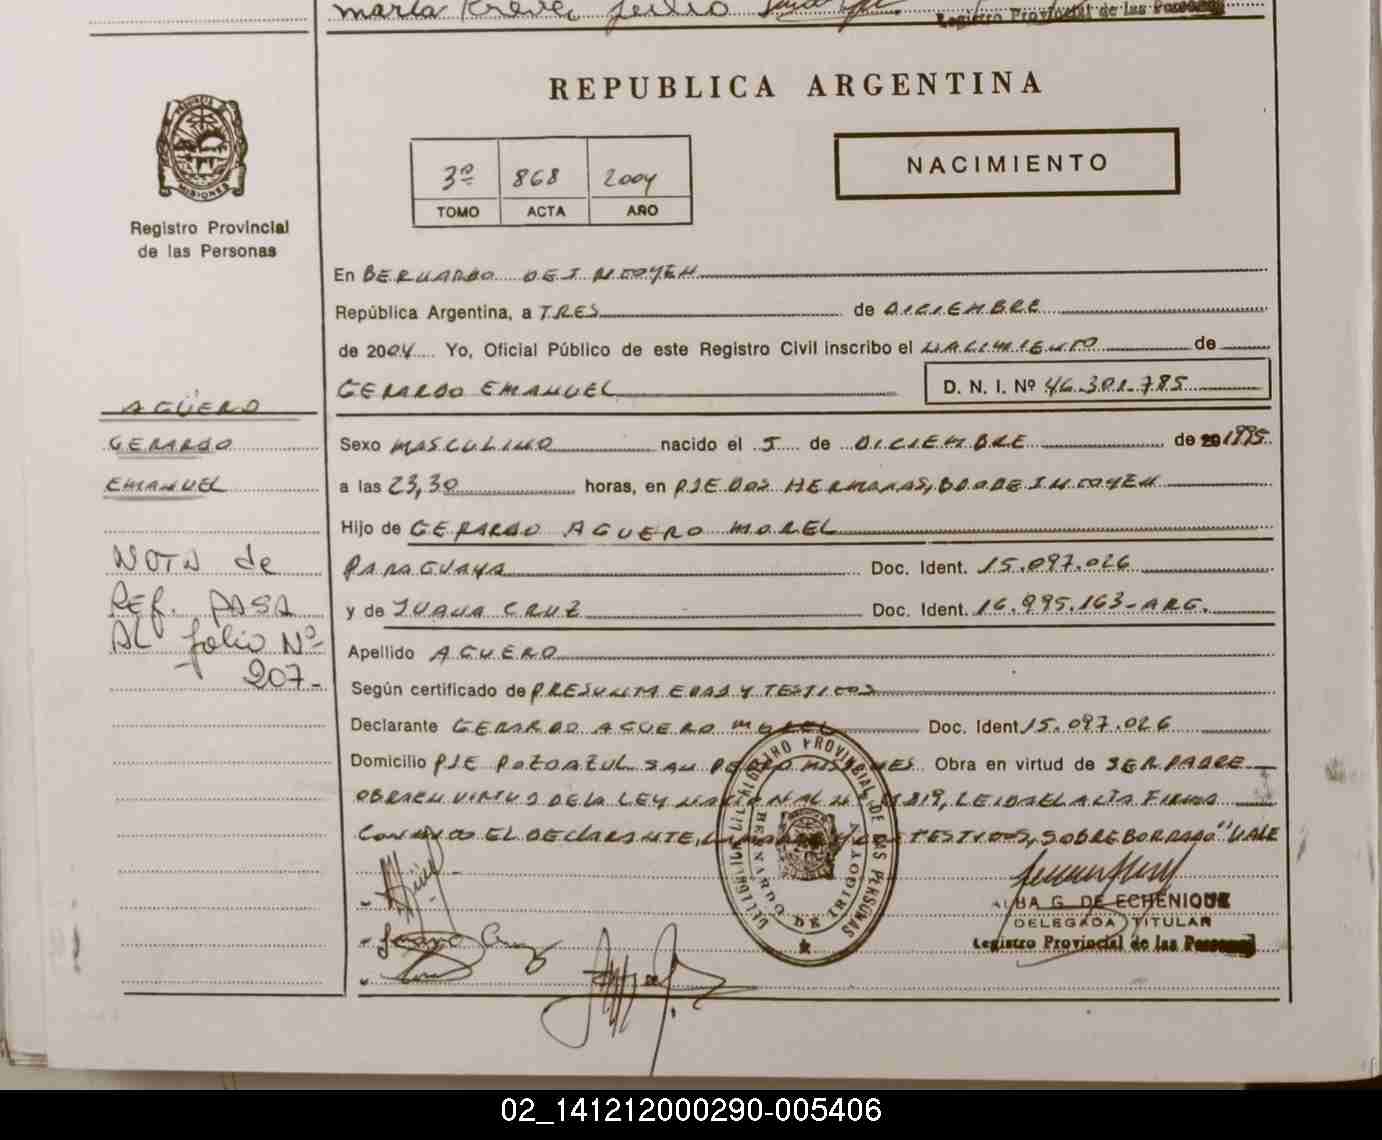 María
Julio
Registro Provincial de las Personas
REPUBLICA ARGENTINA
3º 868 2004
TOMO ACTA AÑO
NACIMIENTO
MISIONES
Registro Provincial
de las Personas
En BERNARDO DE IRIGOYEN
República Argentina, a TRES de DICIEMBRE
de 2004 Yo, Oficial Público de este Registro Civil inscribo el NACIMIENTO de
GERARDO EMANUEL D. N. I. Nº 46.301.785
AGÜERO
GERARDO
EMANUEL
Sexo MASCULINO nacido el 5 de DICIEMBRE de 20 1995
a las 23,30 horas, en PJE DOS HERMANAS, BDO DE IRIGOYEN
Hijo de GERARDO AGUERO MOREL
PARAGUAYA Doc. Ident. 15.097.026
y de JUANA CRUZ Doc. Ident. 16.995.163-ARG.
Apellido AGUERO
NOTA de
REF. PASA
AL folio Nº
207-
Según certificado de PRESUNTA EDAD Y TESTIGOS
Declarante GERARDO AGUERO MOREL Doc. Ident. 15.097.026
Domicilio PJE POZO AZUL SAN PEDRO MISIONES Obra en virtud de SER PADRE
OBRA EN VIRTUD DE LA LEY NACIONAL Nº 819, LEIDA EL ACTA FIRMA
CONMIGO EL DECLARANTE, LA MADRE Y LOS TESTIGOS, SOBREBORRADO "VALE
REGISTRO PROVINCIAL DE LAS PERSONAS
BERNARDO DE IRIGOYEN
ALBA G. DE ECHENIQUE
DELEGADA TITULAR
Registro Provincial de las Personas
Cruz
02_141212000290-005406